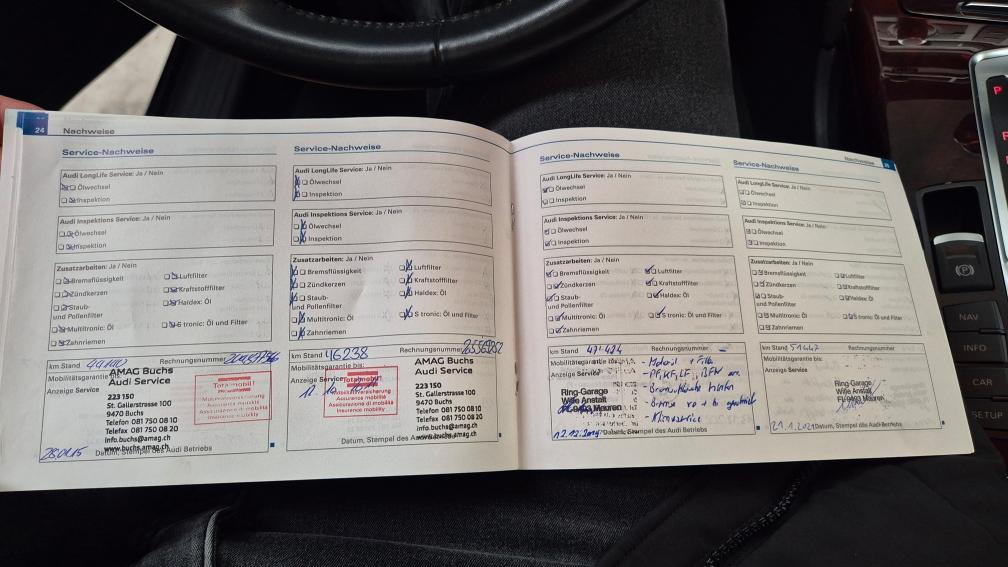 24
Nachweise
Service-Nachweise
Audi LongLife Service: Ja / Nein
Ölwechsel
Inspektion
Audi Inspektions Service: Ja / Nein
Ölwechsel
Inspektion
Zusatzarbeiten: Ja / Nein
Bremsflüssigkeit
Luftfilter
Zündkerzen
Kraftstofffilter
Staub-
und Pollenfilter
Haldex: Öl
Multitronic: Öl
S tronic: Öl und Filter
Zahnriemen
km Stand
Rechnungsnummer
Mobilitätsgarantie bis:
Anzeige Service
AMAG Buchs
Audi Service
223 150
St. Gallerstrasse 100
9470 Buchs
Telefon 081 750 08 10
Telefax 081 750 08 20
info.buchs@amag.ch
www.buchs.amag.ch
Totalmobil!
Mobilitätsversicherung
Assurance mobilité
Assicurazione di mobilità
Insurance mobility
28.01.15
Datum, Stempel des Audi Betriebs
Service-Nachweise
Audi LongLife Service: Ja / Nein
Ölwechsel
Inspektion
Audi Inspektions Service: Ja / Nein
Ölwechsel
Inspektion
Zusatzarbeiten: Ja / Nein
Bremsflüssigkeit
Luftfilter
Zündkerzen
Kraftstofffilter
Staub-
und Pollenfilter
Haldex: Öl
Multitronic: Öl
S tronic: Öl und Filter
Zahnriemen
km Stand 46238
Rechnungsnummer
Mobilitätsgarantie bis:
Anzeige Service
Totalmobil!
Mobilitätsversicherung
Assurance mobilité
Assicurazione di mobilità
Insurance mobility
AMAG Buchs
Audi Service
223 150
St. Gallerstrasse 100
9470 Buchs
Telefon 081 750 08 10
Telefax 081 750 08 20
info.buchs@amag.ch
www.buchs.amag.ch
Datum, Stempel des Audi Betriebs
Service-Nachweise
Audi LongLife Service: Ja / Nein
Ölwechsel
Inspektion
Audi Inspektions Service: Ja / Nein
Ölwechsel
Inspektion
Zusatzarbeiten: Ja / Nein
Bremsflüssigkeit
Luftfilter
Zündkerzen
Kraftstofffilter
Staub-
und Pollenfilter
Haldex: Öl
Multitronic: Öl
S tronic: Öl und Filter
Zahnriemen
km Stand 47'424
Rechnungsnummer
Mobilitätsgarantie bis:
Anzeige Service
Ring-Garage
Wille Anstalt
Mauren
Datum, Stempel des Audi Betriebs
Nachweise
25
Service-Nachweise
Audi LongLife Service: Ja / Nein
Ölwechsel
Inspektion
Audi Inspektions Service: Ja / Nein
Ölwechsel
Inspektion
Zusatzarbeiten: Ja / Nein
Bremsflüssigkeit
Luftfilter
Zündkerzen
Kraftstofffilter
Staub-
und Pollenfilter
Haldex: Öl
Multitronic: Öl
S tronic: Öl und Filter
Zahnriemen
km Stand 51447
Rechnungsnummer
Mobilitätsgarantie bis:
Anzeige Service
Ring-Garage
Wille Anstalt
Mauren
21.1.2021
Datum, Stempel des Audi Betriebs
P
R
P
NAV
INFO
CAR
SETUP